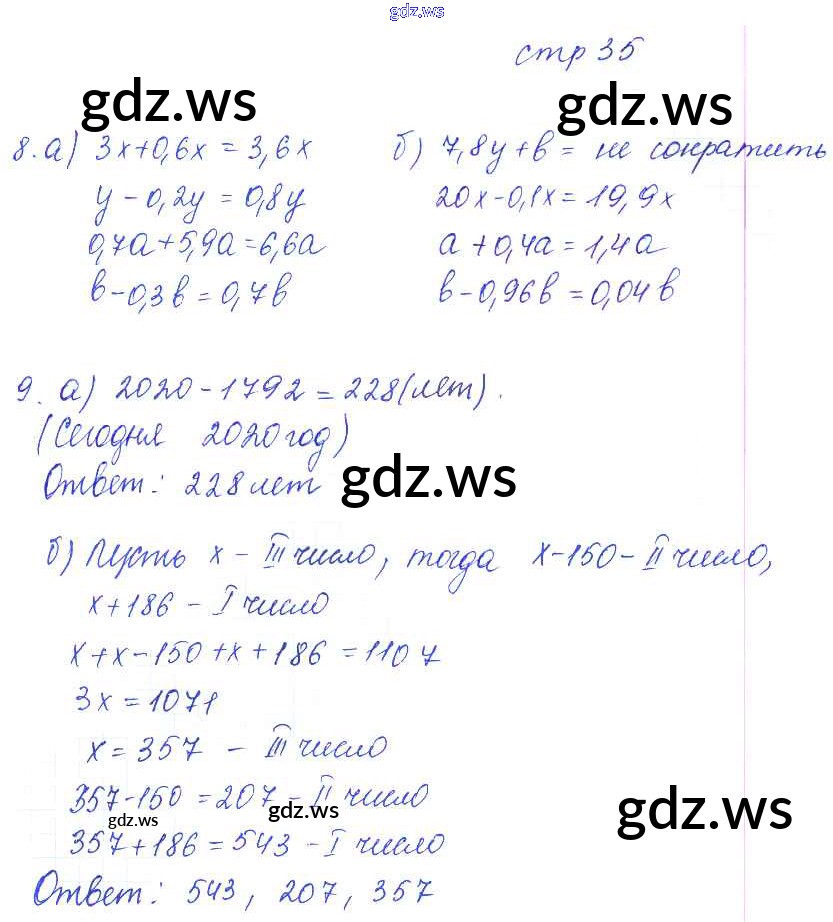 gdz.ws
стр 35
gdz.ws gdz.ws
8. а) 3х+0,6х = 3,6х б) 7,8у+в = не сократить
у - 0,2у = 0,8у 20х-0,1х = 19,9х
0,7а+5,9а=6,6а а+0,4а = 1,4а
в-0,3в = 0,7в в-0,96в = 0,04в
9. а) 2020-1792 = 228(лет).
(Сегодня 2020 год)
Ответ: 228 лет gdz.ws
б) Пусть х - III число, тогда х-150 - II число,
х+186 - I число
х+х-150+х+186 = 1107
3х = 1071
х = 357 - III число
357-150 = 207 - II число
gdz.ws gdz.ws gdz.ws
357+186 = 543 - I число
Ответ: 543, 207, 357